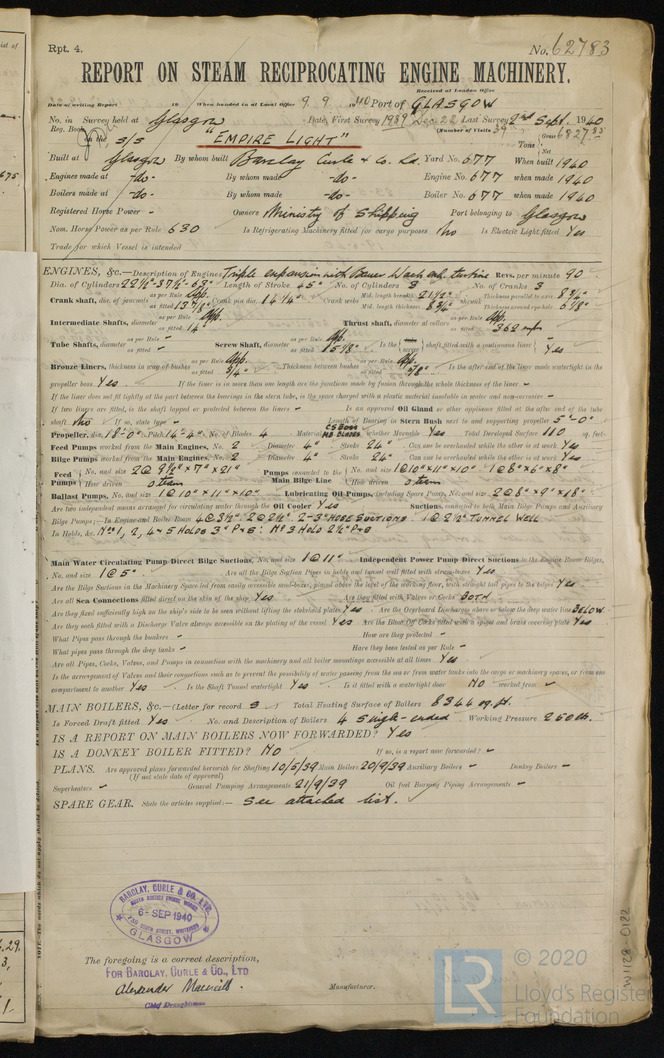 Rpt. 4.
No. 62783
REPORT ON STEAM RECIPROCATING ENGINE MACHINERY.
Received at London Office
Date of writing Report 19 When handed in at Local Office 9. 9. 1940 Port of GLASGOW
No. in Survey held at Glasgow Date, First Survey 1939 Dec. 22 Last Survey 2nd Sept. 1940
Reg. Book. (Number of Visits 39)
on the S/S "EMPIRE LIGHT" Tons Gross 6827
Net
Built at Glasgow By whom built Barclay Curle & Co. Ld. Yard No. 677 When built 1940
Engines made at -do- By whom made -do- Engine No. 677 when made 1940
Boilers made at -do- By whom made -do- Boiler No. 677 when made 1940
Registered Horse Power - Owners Ministry of Shipping Port belonging to Glasgow
Nom. Horse Power as per Rule 630 Is Refrigerating Machinery fitted for cargo purposes No Is Electric Light fitted Yes
Trade for which Vessel is intended
ENGINES, &c.—Description of Engines Triple expansion with Bauer Wach exh. turbine Revs. per minute 90
Dia. of Cylinders 22½"-37½"-63" Length of Stroke 45" No. of Cylinders 3 No. of Cranks 3
Crank shaft, dia. of journals as per Rule App. as fitted 13⅞" Crank pin dia. 14¼" Crank webs Mid. length breadth 21½" Mid. length thickness 8¾" Thickness parallel to axis 8¾" Thickness around eye-hole
Intermediate Shafts, diameter as per Rule App. as fitted 14" Thrust shaft, diameter at collars as per Rule App. as fitted 362 m/m
Tube Shafts, diameter as per Rule - as fitted - Screw Shaft, diameter as per Rule App. as fitted 15⅛" Is the screw shaft fitted with a continuous liner Yes
Bronze Liners, thickness in way of bushes as per Rule App. as fitted ¾" Thickness between bushes as per Rule App. as fitted ⅝" Is the after end of the liner made watertight in the
propeller boss Yes. If the liner is in more than one length are the junctions made by fusion through the whole thickness of the liner -
If the liner does not fit tightly at the part between the bearings in the stern tube, is the space charged with a plastic material insoluble in water and non-corrosive -
If two liners are fitted, is the shaft lapped or protected between the liners - Is an approved Oil Gland or other appliance fitted at the after end of the tube
shaft No If so, state type - Length of Bearing in Stern Bush next to and supporting propeller 5'-0"
Propeller, dia. 18'-0" Pitch 14'-4" No. of Blades 4 Material CS BOSS MB BLADES whether Moveable Yes Total Developed Surface 110 sq. feet
Feed Pumps worked from the Main Engines, No. 2 Diameter 4" Stroke 24" Can one be overhauled while the other is at work Yes
Bilge Pumps worked from the Main Engines, No. 2 Diameter 4" Stroke 24" Can one be overhauled while the other is at work Yes
Feed Pumps No. and size 2@ 9½" x 7" x 21" How driven steam Pumps connected to the Main Bilge Line No. and size 1@10"x11"x10" 1@8"x6"x8" How driven steam
Ballast Pumps, No. and size 1@10"x11"x10" Lubricating Oil Pumps, including Spare Pump, No. and size 2@8"x9"x18"
Are two independent means arranged for circulating water through the Oil Cooler Yes Suctions, connected to both Main Bilge Pumps and Auxiliary
Bilge Pumps;—In Engine and Boiler Room 4@3½". 2@2½". 2-3" HOSE SUCTIONS 1@2½" TUNNEL WELL
In Holds, &c. Nos 1, 2, 4 & 5 HOLDS 3" P&S : No 3 HOLD 2½" P&S
Main Water Circulating Pump Direct Bilge Suctions, No. and size 1@11" Independent Power Pump Direct Suctions to the Engine Room Bilges,
No. and size 1@5" Are all the Bilge Suction Pipes in holds and tunnel well fitted with strum-boxes Yes.
Are the Bilge Suctions in the Machinery Space led from easily accessible mud-boxes, placed above the level of the working floor, with straight tail pipes to the bilges Yes
Are all Sea Connections fitted direct on the skin of the ship Yes Are they fitted with Valves or Cocks BOTH
Are they fixed sufficiently high on the ship's side to be seen without lifting the stokehold plates Yes Are the Overboard Discharges above or below the deep water line BELOW
Are they each fitted with a Discharge Valve always accessible on the plating of the vessel Yes Are the Blow Off Cocks fitted with a spigot and brass covering plate Yes
What Pipes pass through the bunkers - How are they protected -
What pipes pass through the deep tanks - Have they been tested as per Rule -
Are all Pipes, Cocks, Valves, and Pumps in connection with the machinery and all boiler mountings accessible at all times Yes.
Is the arrangement of Valves and their connections such as to prevent the possibility of water passing from the sea or from water tanks into the cargo or machinery spaces, or from one
compartment to another Yes Is the Shaft Tunnel watertight Yes Is it fitted with a watertight door NO worked from
MAIN BOILERS, &c.—(Letter for record S) Total Heating Surface of Boilers 8344 sq. ft.
Is Forced Draft fitted Yes No. and Description of Boilers 4 Single-ended Working Pressure 250 lb.
IS A REPORT ON MAIN BOILERS NOW FORWARDED? Yes
IS A DONKEY BOILER FITTED? NO If so, is a report now forwarded? -
PLANS. Are approved plans forwarded herewith for Shafting 10/5/39 Main Boilers 20/9/39 Auxiliary Boilers - Donkey Boilers -
(If not state date of approval)
Superheaters - General Pumping Arrangements 21/9/39 Oil fuel Burning Piping Arrangements -
SPARE GEAR. State the articles supplied:— See attached list.
BARCLAY, CURLE & CO. LTD.
6-SEP 1940
GLASGOW
The foregoing is a correct description,
FOR BARCLAY, CURLE & CO., LTD
Alexander
Manufacturer.
Chief Draughtsman
W1128-0122
LR
© 2020
Lloyd's Register
Foundation